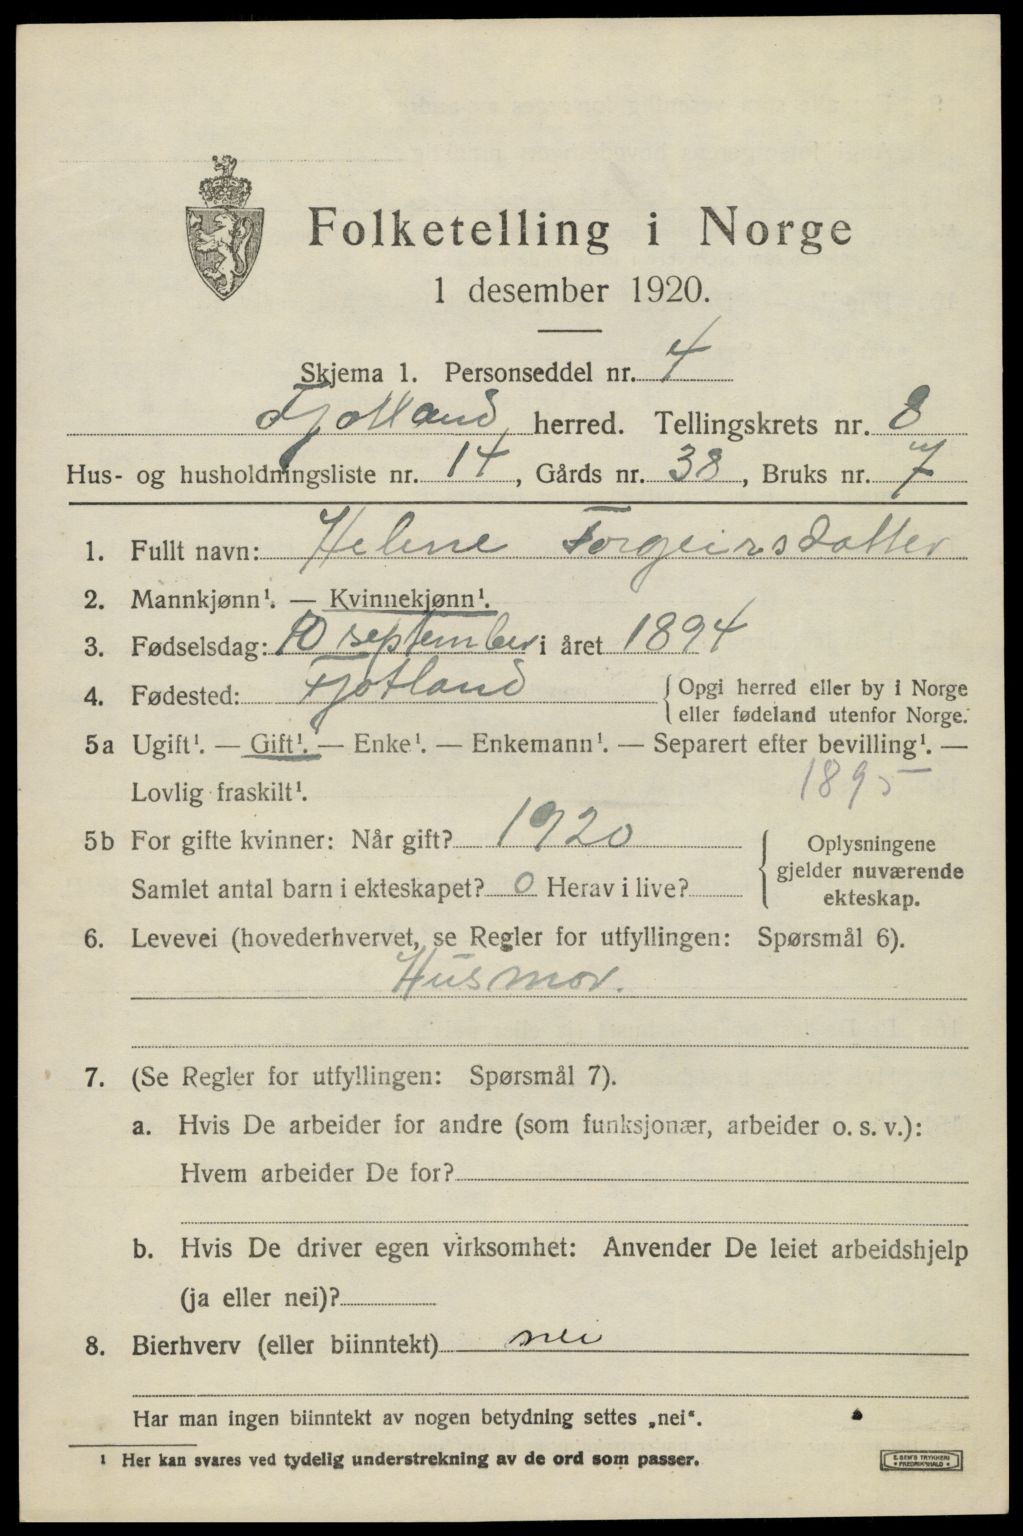 Folketelling i Norge
1 desember 1920.
Skjema 1. Personseddel nr. 4
Fjotland herred. Tellingskrets nr. 8
Hus- og husholdningsliste nr. 14, Gårds nr. 38, Bruks nr. 7
1. Fullt navn: Helene Torgeirsdatter
2. Mannkjønn¹. — Kvinnekjønn¹.
3. Fødselsdag: 10 september i året 1894
4. Fødested: Fjotland { Opgi herred eller by i Norge
eller fødeland utenfor Norge.
5a Ugift¹. — Gift¹. — Enke¹. — Enkemann¹. — Separert efter bevilling¹. —
Lovlig fraskilt¹. 1895
5b For gifte kvinner: Når gift? 1920 { Oplysningene
gjelder nuværende
Samlet antal barn i ekteskapet? 0 Herav i live?
ekteskap.
6. Levevei (hovederhvervet, se Regler for utfyllingen: Spørsmål 6).
Husmor.
7. (Se Regler for utfyllingen: Spørsmål 7).
a. Hvis De arbeider for andre (som funksjonær, arbeider o. s. v.):
Hvem arbeider De for?
b. Hvis De driver egen virksomhet: Anvender De leiet arbeidshjelp
(ja eller nei)?
8. Bierhverv (eller biinntekt) nei
Har man ingen biinntekt av nogen betydning settes „nei“.
¹ Her kan svares ved tydelig understrekning av de ord som passer.
E. SEM'S TRYKKERI
FREDRIKSHALD